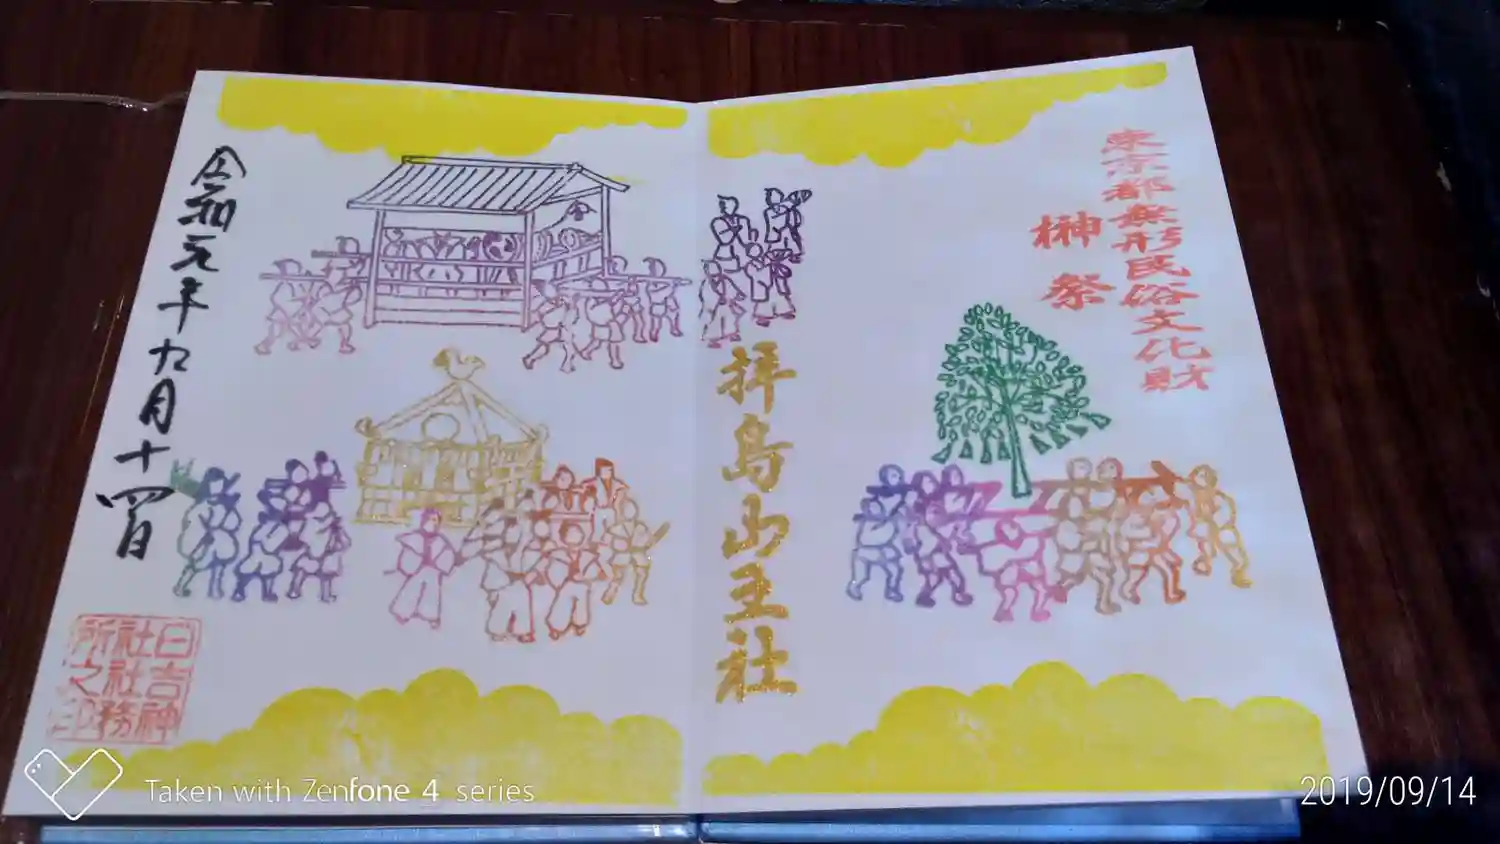 東京都無形民俗文化財
榊祭
拝島山王社
令和元年九月十四日
日吉神
社社務
所之印
Taken with Zenfone 4 series
2019/09/14